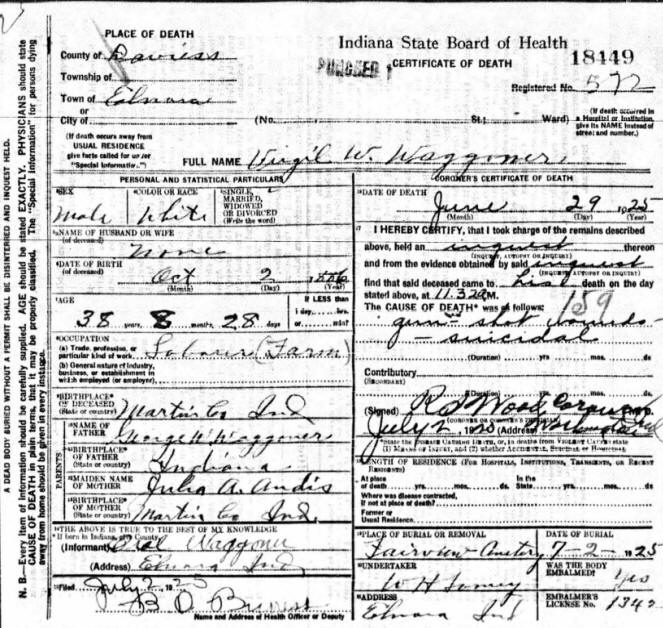 PLACE OF DEATH
County of Daviess
Township of
Town of Elnora
or
City of
(If death occurs away from
USUAL RESIDENCE
give facts called for under
"Special Information.")
Indiana State Board of Health
CERTIFICATE OF DEATH
PUNCHED
18449
Registered No. 572
(No. St.; Ward)
(If death occurred in
a Hospital or Institution,
give its NAME instead of
street and number.)
FULL NAME Virgil W. Waggoner
PERSONAL AND STATISTICAL PARTICULARS
SEX
Male
COLOR OR RACE
White
SINGLE,
MARRIED,
WIDOWED
OR DIVORCED
(Write the word)
NAME OF HUSBAND OR WIFE
(of deceased)
None
DATE OF BIRTH
(of deceased)
Oct 2 1886
(Month) (Day) (Year)
AGE
38 years, 8 months, 28 days
If LESS than
1 day, hrs.
or min?
OCCUPATION
(a) Trade, profession, or
particular kind of work Laborer (Farm)
(b) General nature of industry,
business, or establishment in
which employed (or employer)
BIRTHPLACE
OF DECEASED
(State or country) Martin Co Ind
PARENTS
NAME OF
FATHER George W Waggoner
BIRTHPLACE
OF FATHER
(State or country) Indiana
MAIDEN NAME
OF MOTHER Julia A. Andis
BIRTHPLACE
OF MOTHER
(State or country) Martin Co Ind.
THE ABOVE IS TRUE TO THE BEST OF MY KNOWLEDGE
If born in Indiana, give County
(Informant) Waggoner
(Address) Elnora Ind
Filed July 2 1925
Name and Address of Health Officer or Deputy
CORONER'S CERTIFICATE OF DEATH
DATE OF DEATH
June 29 1925
(Month) (Day) (Year)
I HEREBY CERTIFY, that I took charge of the remains described
above, held an inquest thereon
(INQUEST, AUTOPSY OR INQUIRY)
and from the evidence obtained by said inquest
(INQUEST, AUTOPSY OR INQUIRY)
find that said deceased came to his death on the day
stated above, at 11.32 M.
159
The CAUSE OF DEATH* was as follows:
gun-shot wounds-
- suicidal
(Duration) yrs. mos. ds.
Contributory
(SECONDARY)
(Duration) yrs. mos. ds.
(Signed) Wood Coroner
(CORONER OR CORONER'S PHYSICIAN)
July 2, 19 (Address) Washington Ind
*State the DISEASE CAUSING DEATH, or, in deaths from VIOLENT CAUSES state
(1) MEANS OF INJURY, and (2) whether ACCIDENTAL, SUICIDAL or HOMICIDAL.
LENGTH OF RESIDENCE (FOR HOSPITALS, INSTITUTIONS, TRANSIENTS, OR RECENT
RESIDENTS)
At place
of death yrs. mos. ds.
In the
State yrs. mos. ds.
Where was disease contracted,
if not at place of death?
Former or
Usual Residence
PLACE OF BURIAL OR REMOVAL
Fairview Cemetery
DATE OF BURIAL
7-2-1925
UNDERTAKER
W H
WAS THE BODY
EMBALMED?
Yes
ADDRESS
Elnora Ind
EMBALMER'S
LICENSE No. 1342
A DEAD BODY BURIED WITHOUT A PERMIT SHALL BE DISINTERRED AND INQUEST HELD.
N. B.—Every item of information should be carefully supplied. AGE should be stated EXACTLY. PHYSICIANS should state
CAUSE OF DEATH in plain terms, that it may be properly classified. The "Special Information" for persons dying
away from home should be given in every instance.